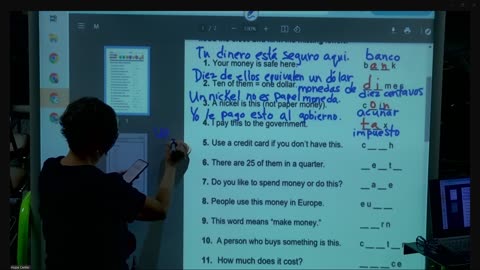 Tu dinero está seguro aqui. banco
1. Your money is safe here. b a n k
Diez de ellos equivalen un dólar.
2. Ten of them = one dollar. monedas de d i m e s
Un nickel no es papel moneda. diez centavos
3. A nickel is this (not paper money). c o i n
Yo le pago esto al gobierno. acuñar
4. I pay this to the government. t a x
impuesto
5. Use a credit card if you don't have this. c _ _ h
6. There are 25 of them in a quarter. _ e _ t _
7. Do you like to spend money or do this? _ a _ e
8. People use this money in Europe. e u _ _
9. This word means "make money." _ _ r n
10. A person who buys something is this. c _ _ t _
11. How much does it cost? _ _ c e